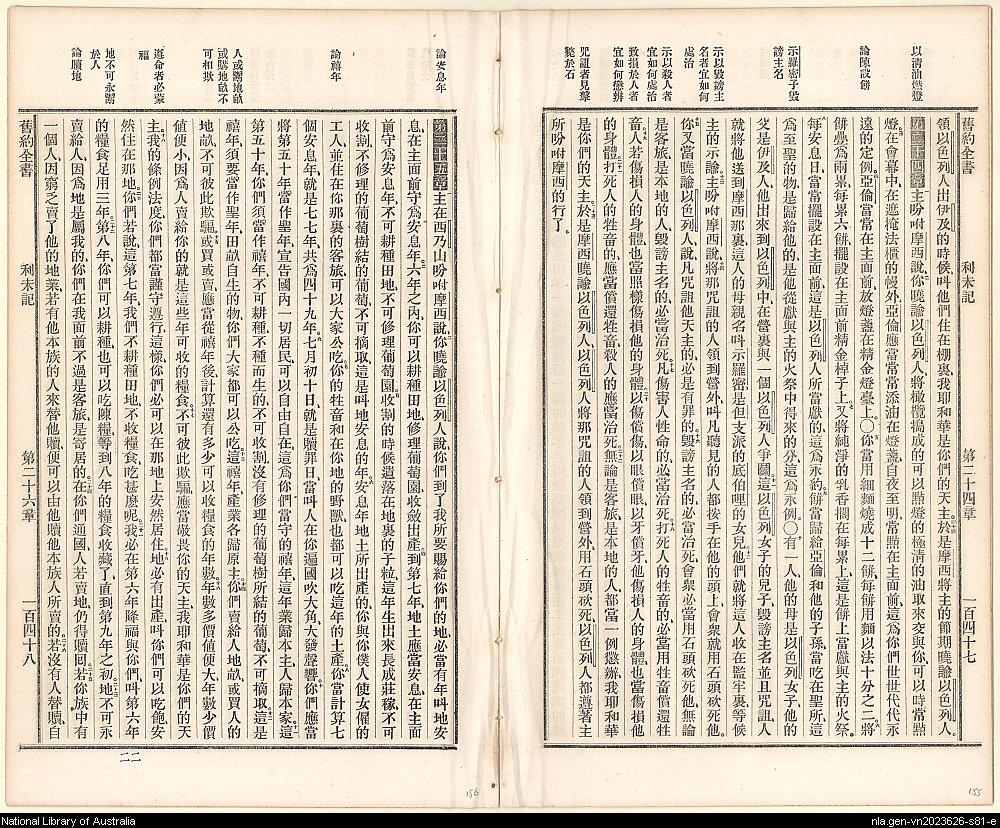 以清油燃燈
論陳設餅
示羅密子毀
謗主名
示以毀謗主
名者宜如何
處治
示以殺人者
宜如何處治
致損於人者
宜如何懲辦
咒詛者見擊
斃於石
舊約全書
利未記
第二十四章
一百四十七
領以色列人出伊及的時候叫他們住在棚裏我耶和華是你們的天主於是摩西將主的節期曉諭以色列人
第二十四章 主吩咐摩西說你曉諭以色列人將橄欖搗成的可以點燈的極清的油取來交與你可以時常點
燈在會幕中在遮掩法櫃的幔外亞倫應當常常添油在燈盞自夜至明常點在主面前這爲你們世世代代永
遠的定例亞倫當常在主面前放燈盞在精金燈臺上〇你當用細麵燒成十二餅每餅用麵以法十分之二將
餅疊爲兩累每累六餅擺設在主面前精金棹子上又將純淨的乳香擱在每累上這是餅上當獻與主的火祭
每安息日當常擺設在主面前這是以色列人所當獻的這爲永約餅當歸給亞倫和他的子孫當吃在聖所這
爲至聖的物是歸給他的是他從獻與主的火祭中得來的分這爲永例〇有一人他的母是以色列女子他的
父是伊及人他出來到以色列中在營裏與一個以色列人爭鬬這以色列女子的兒子毀謗主名並且咒詛人
就將他送到摩西那裏這人的母親名叫示羅密是但支派的底伯哩的女兒他們就將這人收在監牢裏等候
主的示諭主吩咐摩西說將那咒詛的人領到營外叫凡聽見的人都按手在他的頭上會衆就用石頭砍死他
你又當曉諭以色列人說凡咒詛他天主的必是有罪的毀謗主名的必當治死會衆必當用石頭砍死他無論
是客旅是本地的人毀謗主名的必當治死凡傷害人性命的必當治死打死人的牲畜的必當用牲畜償還牲
畜人若傷損人的身體也當照樣傷損他的身體以傷償傷以眼償眼以牙償牙他傷損人的身體也當傷損他
的身體打死人的牲畜的應當償還牲畜殺人的應當治死無論是客旅是本地的人都當一例懲辦我耶和華
是你們的天主於是摩西曉諭以色列人以色列人將那咒詛的人領到營外用石頭砍死以色列人都遵著主
所吩咐摩西的行了
155
論安息年
論禧年
人或鬻地畝
或購地畝不
可相欺
遵命者必蒙
福
地不可永鬻
於人
論贖地
第二十五章 主在西乃山吩咐摩西說你曉諭以色列人說你們到了我所要賜給你們的地必當有年叫地安
息在主面前守爲安息年六年之內你可以耕種田地修理葡萄園收斂出產到第七年地土應當安息在主面
前守爲安息年不可耕種田地不可修理葡萄園收割的時候遺落在地裏的子粒這年生出來長成莊稼不可
收割不修理的葡萄樹結的葡萄不可摘取這是叫地安息的年安息年地土所出產的你與你僕人使女僱的
工人並住在你那裏的客旅可以大家公吃你的牲畜和在你地的野獸也都可以吃這年的土產你當計算七
個安息年就是七七年共爲四十九年七月初十日就是贖罪日當叫人在你遍國吹大角大發聲響你們應當
將第五十年當作聖年宣告國內一切居民可以自由自在這爲你們當守的禧年這年業歸本主人歸本家這
第五十年你們須當作禧年不可耕種不種而生的不可收割沒有修理的葡萄樹所結的葡萄不可摘取這是
禧年須要當作聖年田畝自生的物你們大家都可以公吃這禧年產業各歸原主你們賣給人地畝或買人的
地畝不可彼此欺騙或買或賣應當從禧年後計算還有多少可以收糧食的年數年數多價值便大年數少價
值便小因爲人賣給你的就是這些年可收的糧食不可彼此欺騙應當敬畏你的天主我耶和華是你們的天
主我的條例法度你們都當謹守遵行這樣你們必可以在那地上安然居住地必有出產叫你們可以吃飽安
然住在那地你們若說這第七年我們不耕種田地不收糧食吃甚麼呢我必在第六年降福與你們叫第六年
的糧食足用三年第八年你們可以耕種也可以吃陳糧等到八年的糧食收藏了直到第九年之初地不可永
賣給人因爲地是屬我的你們在我面前不過是客旅是寄居的在你們通國人若賣地仍得贖回若你族中有
一個人因窮乏賣了他的地業若有他本族的人來替他贖便可以由他贖他本族人所賣的若沒有人替贖自
舊約全書
利未記
第二十六章
一百四十八
二二
156
National Library of Australia
nla.gen-vn2023626-s81-e